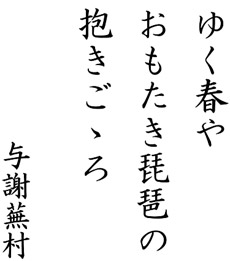 ゆく春や
おもたき琵琶の
抱きごゝろ
与謝蕪村